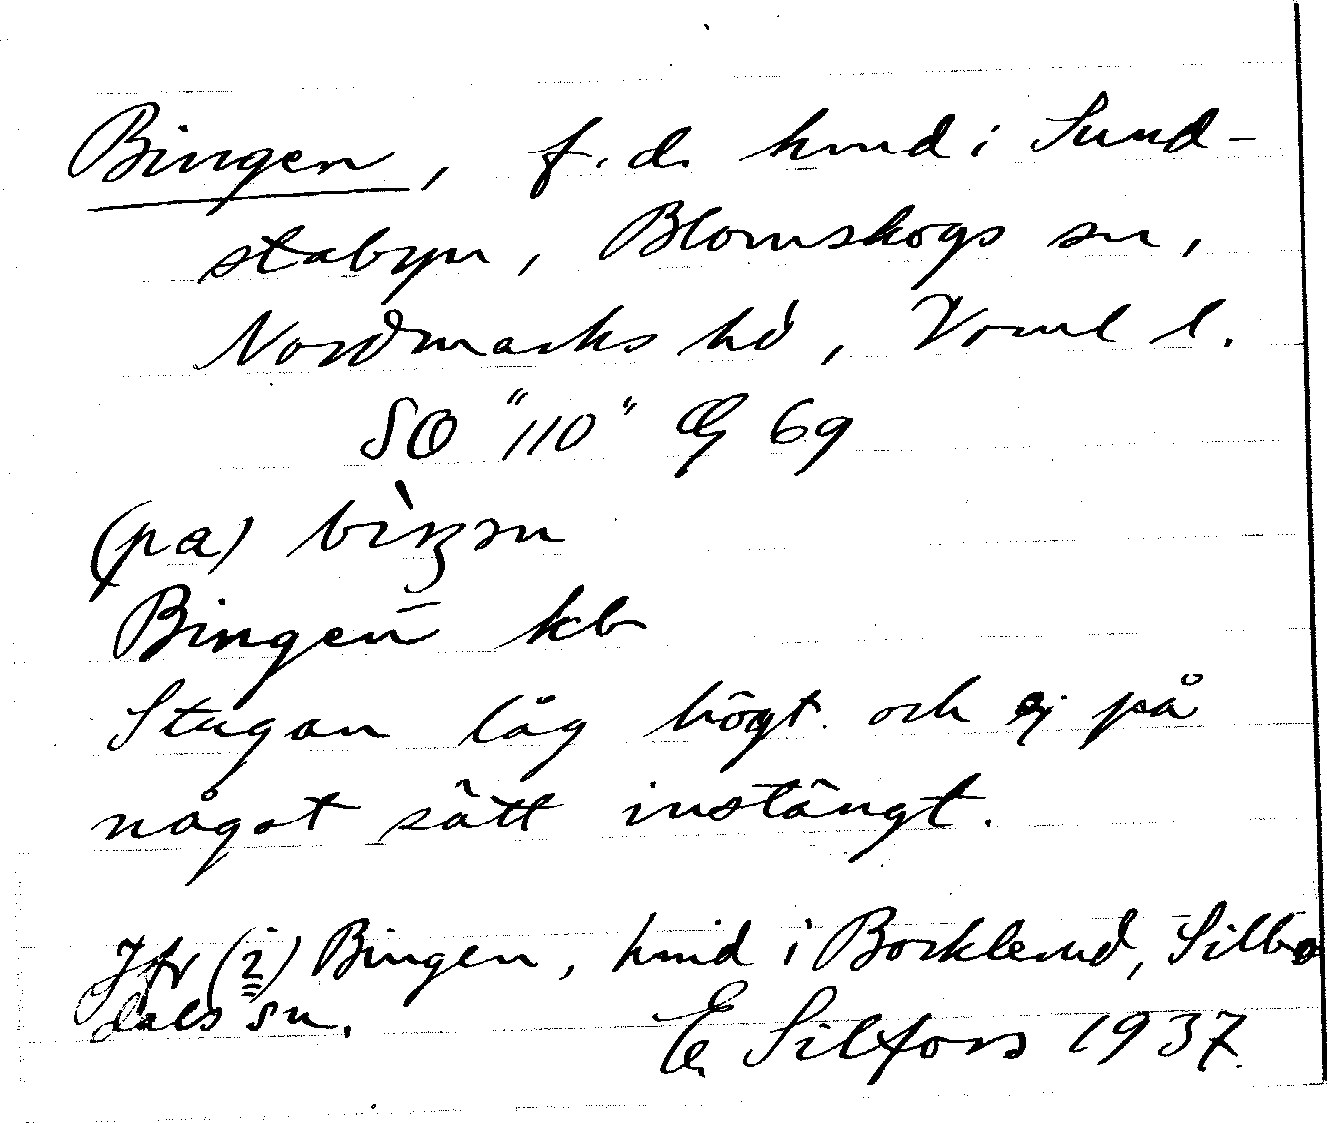 Bingen, f.d. hmd i Sund-
stabyn, Blomskogs sn,
Nordmarks hd, Värml l.
SO "110" Œ 69
(pa)
Bingen kb
Stugan låg högt och ej på
något sätt instängt.
Jfr (i) Bingen, hmd i Bocklerud, Silbo
dals sn.
E. Silfors 1937.